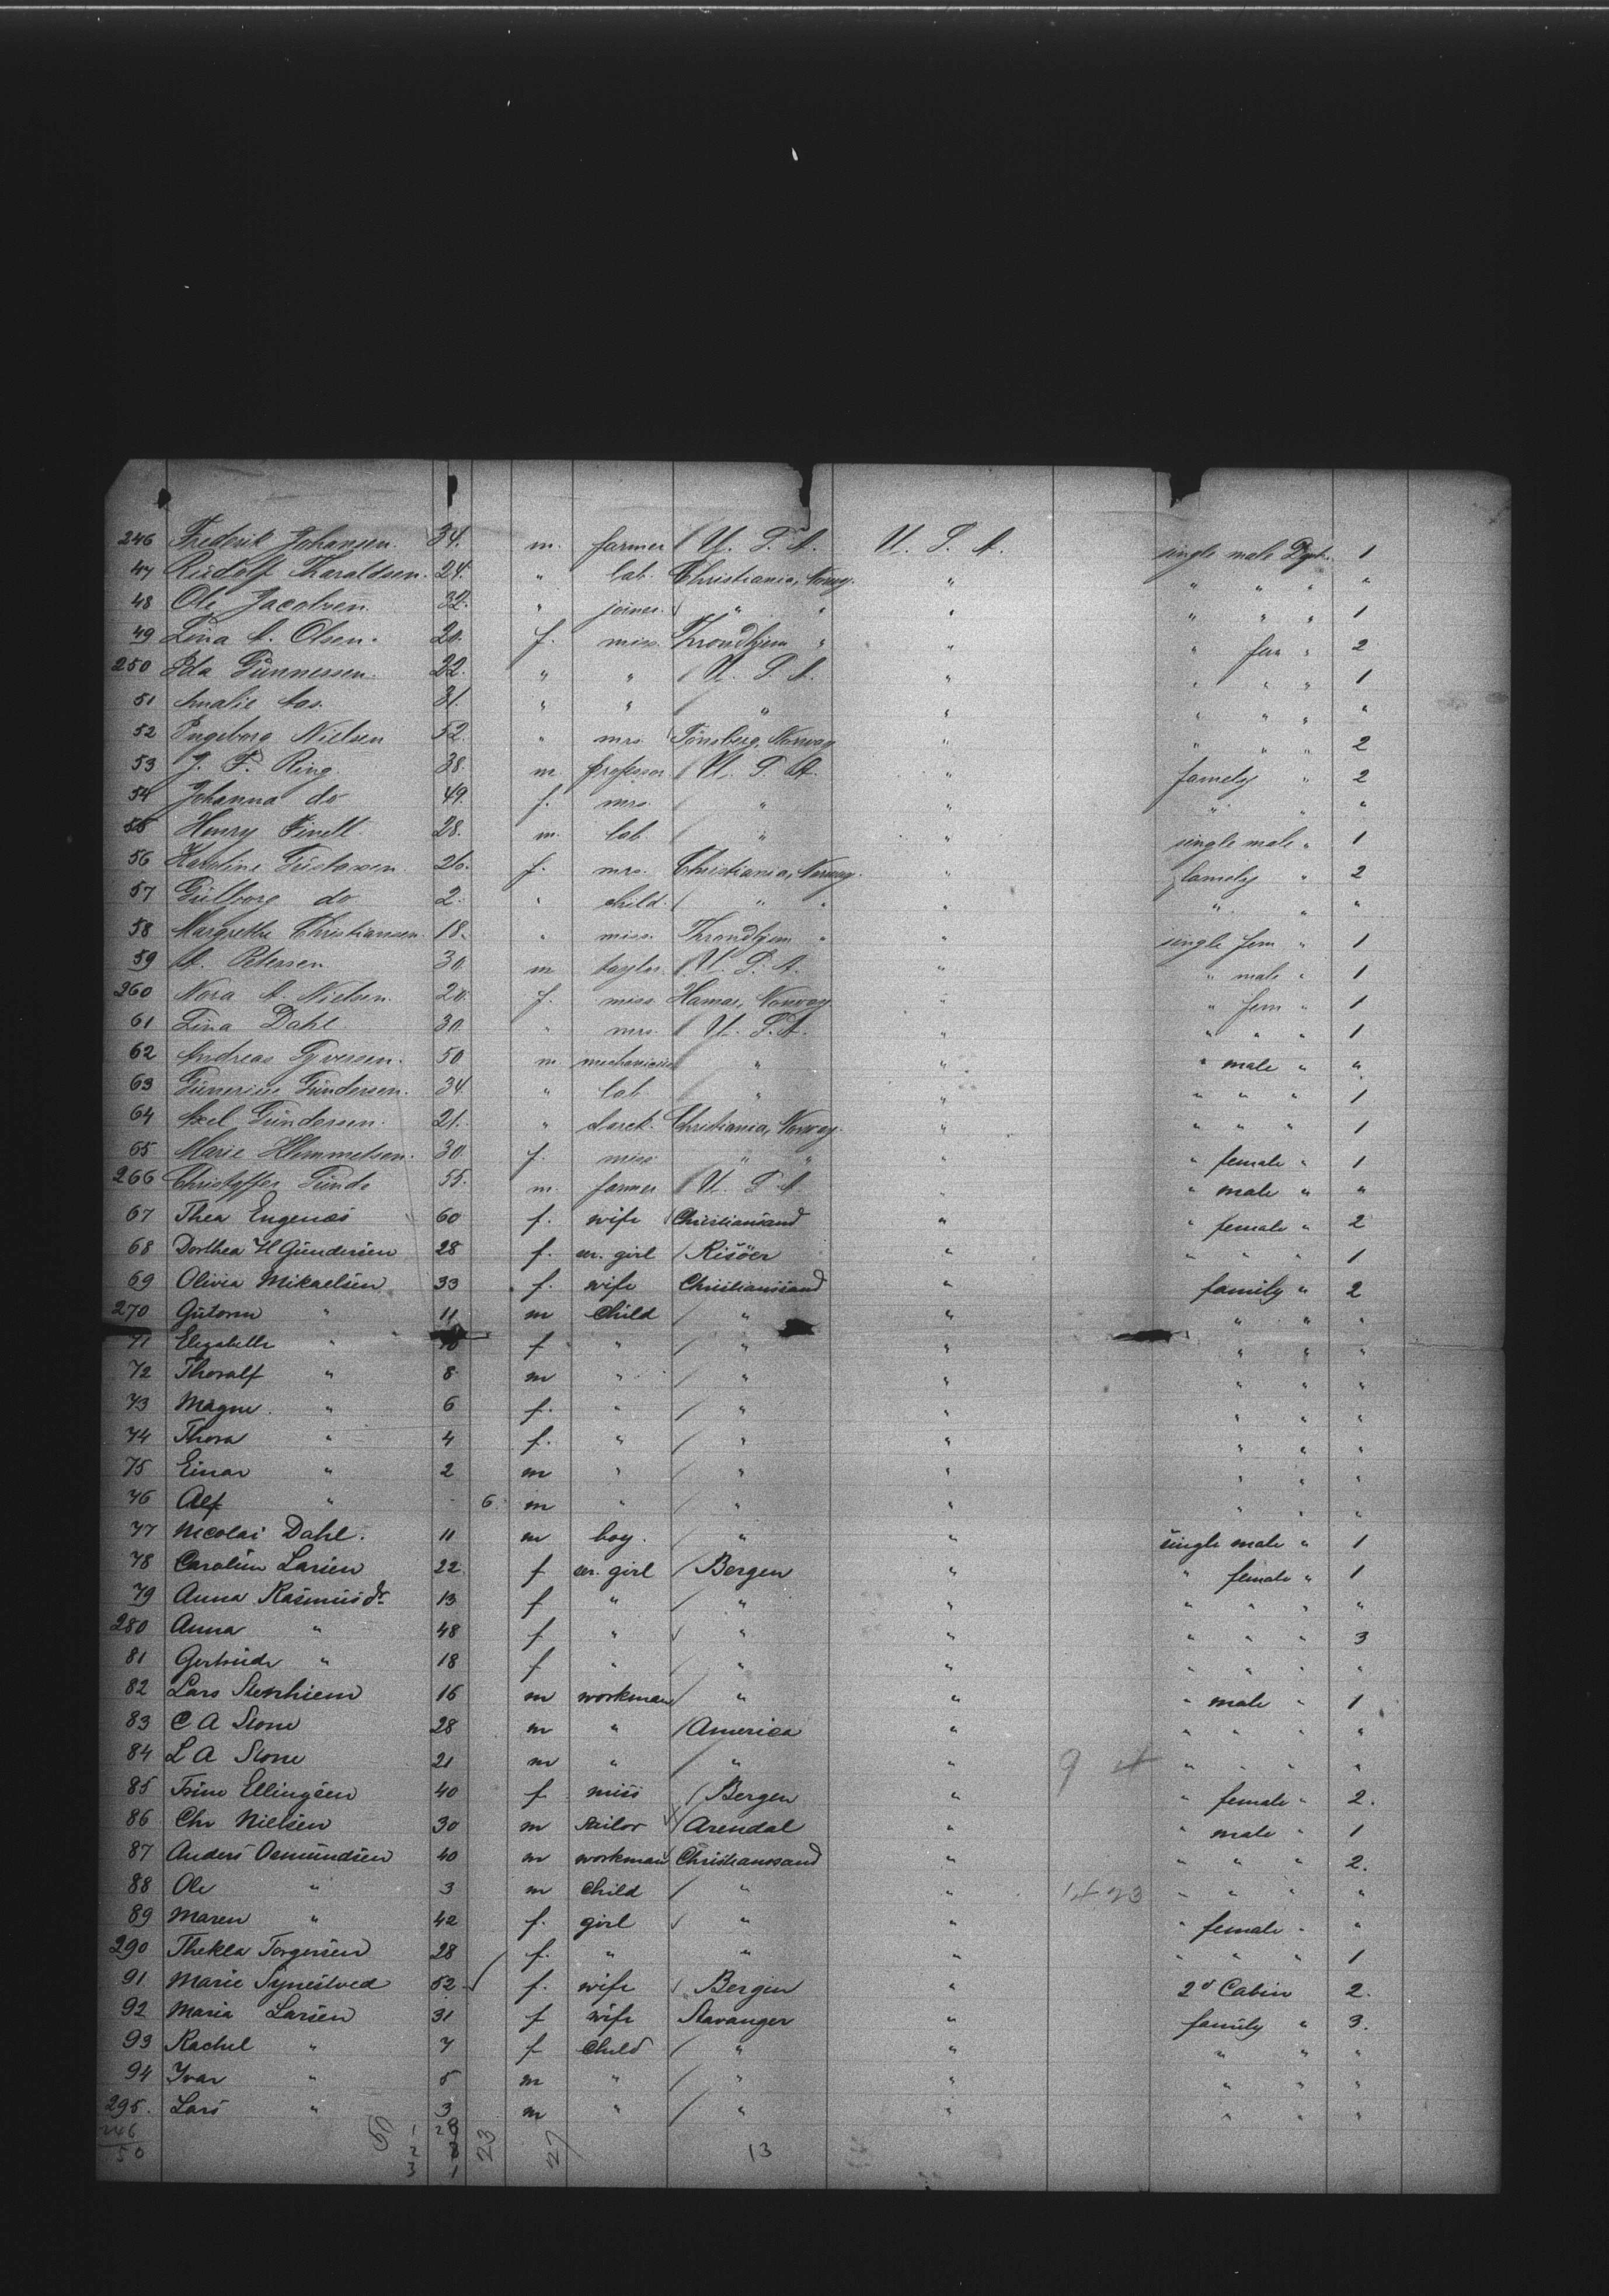 246 Frederik Johansen. 34. m. farmer U. S. A. U. S. A. single male 1
47 Rudolf Haraldsen. 24. " lab. Christiania, Norway. " " " " "
48 Ole Jacobsen. 32. " joiner. " " " " " " 1
49 Lina A. Olsen. 20. f. miss. Throndhjem " " " fem " 2
250 Ida Gunnessen. 22. " " U. S. A. " " " " 1
51 Amalie Aas. 31. " " " " " " " "
52 Ingeborg Nielsen 52. " mrs. Tönsberg, Norway " " " " 2
53 J. F. Ring. 38. m. professor. U. S. A. " famely " 2
54 Johanna do 49. f. mrs. " " " " "
55 Henry Finell. 28. m. lab. " " single male " 1
56 Karoline Gustavsen. 26. f. mrs. Christiania, Norway. " famely " 2
57 Gulborg do 2. " child. " " " " " "
58 Margrethe Christiansen. 18. " miss. Throndhjem " " single fem " 1
59 A. Petersen 30. m taylor. U. S. A. " " male " 1
260 Nora A. Nielsen. 20. f. miss. Hamar, Norway. " " fem " 1
61 Lina Dahl 30. " mrs. U. S. A. " " " " 1
62 Andreas Syversen. 50 m " " " male " "
63 Gunerius Gundersen. 34. " lab. " " " " " 1
64 Axel Gundersen. 21. " Christiania, Norway. " " " " 1
65 Marie Klemmetsen. 30. f. miss " " " " female " 1
266 Christoffer Lunde 55. m. farmer U. S. A. " " male " "
67 Thea Engenæs 60 f. wife Christiansand " " female " 2
68 Dorthea H Gundersen 28 f. ser. girl Risöer " " " " 1
69 Olivia Mikaelsen 33 f. wife Christianssand " family " 2
270 Gutorm " 11 m Child " " " " "
71 Elizabeth " 10 f " " " " " "
72 Thoralf " 8 m " " " " " "
73 Magne " 6 f. " " " " " "
74 Thora " 4 f. " " " " " "
75 Einar " 2 m " " " " " "
76 Alf " - 6. m " " " " " "
77 Nicolai Dahl. 11 m boy. " " single male " 1
78 Carolin Larsen 22. f ser. girl Bergen " " female " 1
79 Anna Rasmusdr 13 f " " " " " " "
280 Anna " 48 f " " " " " " 3
81 Gertrude " 18 f " " " " " " "
82 Lars 16 m workman " " " male " 1
83 C A Stone 28 m " America " " " " "
84 L A Stone 21 m " " " 9 " " " "
85 Trine Ellingsen 40 f miss Bergen " " female " 2.
86 Chr Nielsen 30 m sailor Arendal " " male " 1
87 Anders Osmundsen 40 m workman Christianssand " " " " 2.
88 Ole " 3 m Child " " " " " "
89 Maren " 42 f. girl " " " female " "
290 Thekla Torgersen 28 f. " " " " " " 1
91 Marie Synestved 52 f. wife Bergen " 2d Cabin 2.
92 Maria Larsen 31 f wife Stavanger " family " 3.
93 Rachel " 7 f Child " " " " "
94 Ivar " 5 m " " " " " "
295. Lars " 3 m " " " " " "
246 50 1 28 23 27 13
50 2
3 1